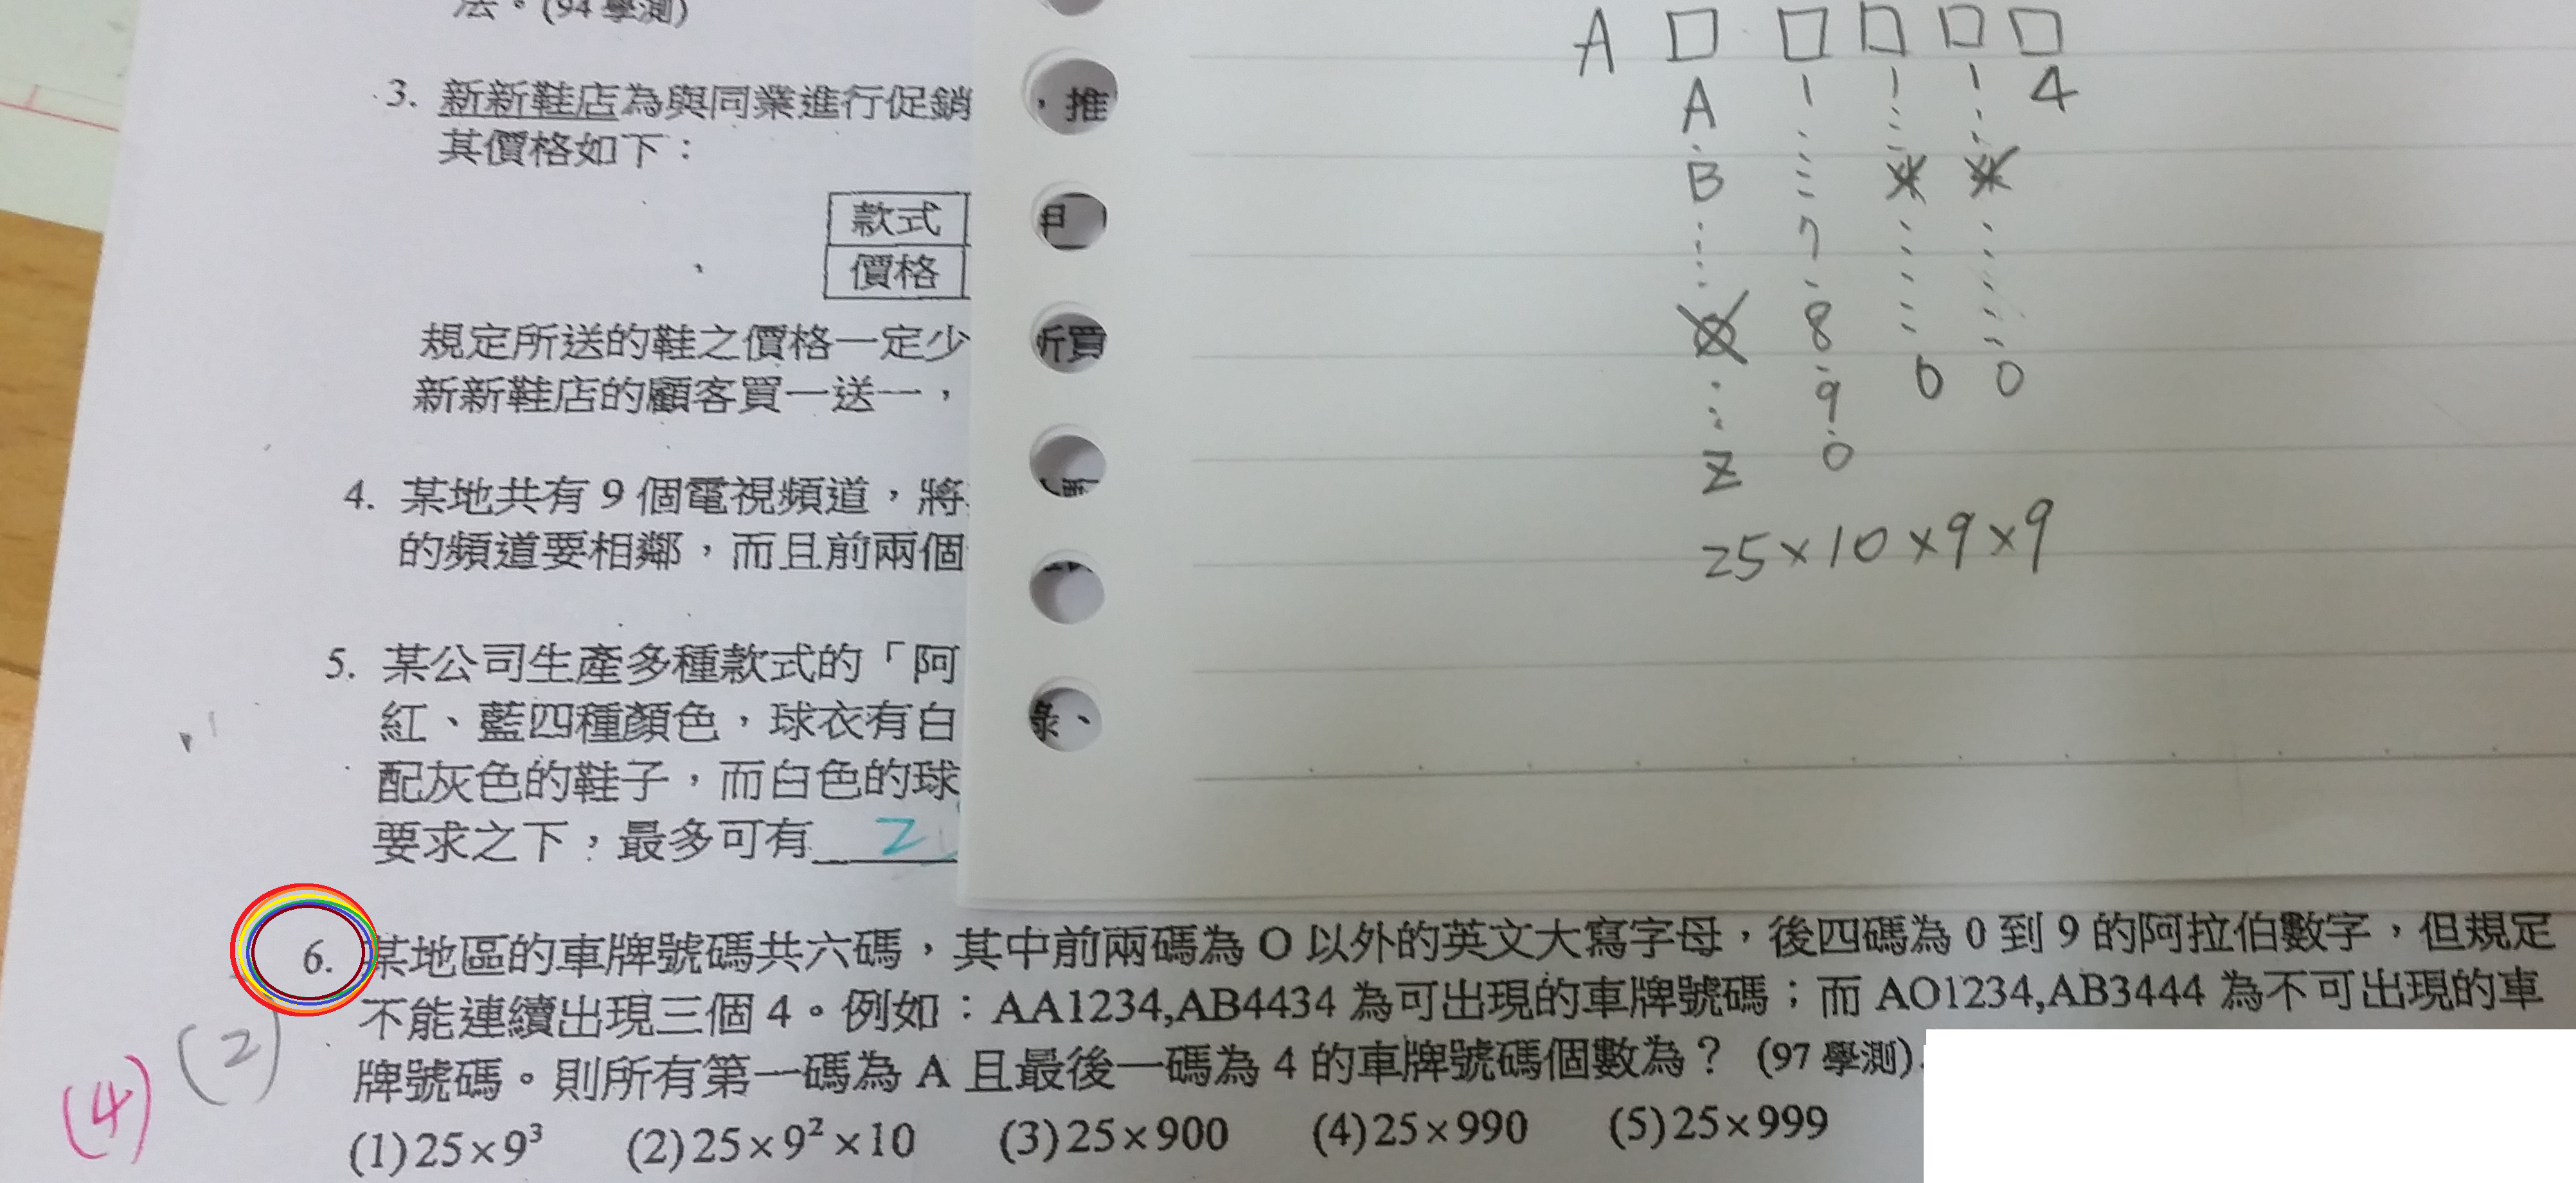 法。(94 學測)
3. 新新鞋店為與同業進行促銷
，推
其價格如下：
款式
價格
規定所送的鞋之價格一定少
所買
新新鞋店的顧客買一送一，
4. 某地共有 9 個電視頻道，將
的頻道要相鄰，而且前兩個
5. 某公司生產多種款式的「阿
紅、藍四種顏色，球衣有白
、
配灰色的鞋子，而白色的球
要求之下，最多可有
A □ □ □ □ □
A 1 1 1 4
B
7
O 8
9 0 0
Z 0
25×10×9×9
6. 某地區的車牌號碼共六碼，其中前兩碼為 O 以外的英文大寫字母，後四碼為 0 到 9 的阿拉伯數字，但規定
不能連續出現三個 4。例如：AA1234,AB4434 為可出現的車牌號碼；而 AO1234,AB3444 為不可出現的車
牌號碼。則所有第一碼為 A 且最後一碼為 4 的車牌號碼個數為？ (97 學測)
(4) (2)
(1)25×9³ (2)25×9²×10 (3)25×900 (4)25×990 (5)25×999